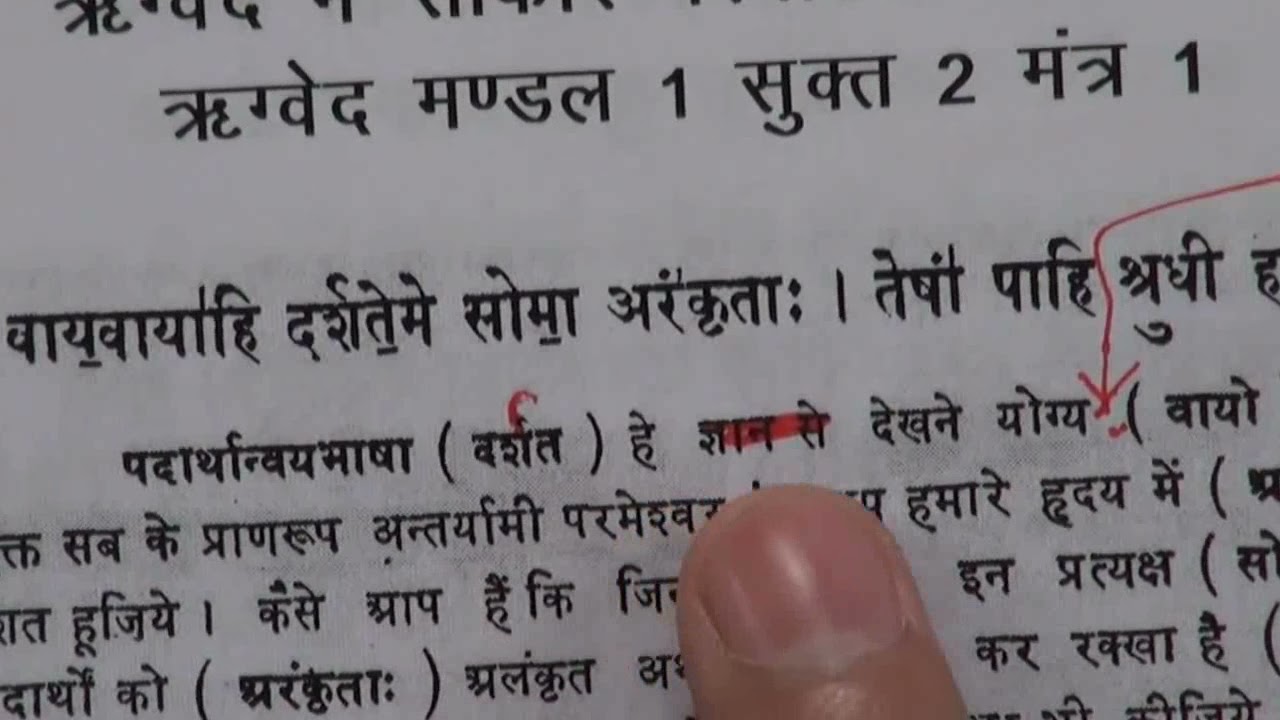 ऋग्वेद में
ऋग्वेद मण्डल 1 सुक्त 2 मंत्र 1
वाय॒वाया॑हि दर्शते॒मे सोमा॒ अरं॑कृताः । तेषां॑ पाहि श्रुधी
पदार्थान्वयभाषा ( दर्शत ) हे ज्ञान से देखने योग्य ( वायो
क्त सब के प्राणरूप अन्तर्यामी परमेश्वर हमारे हृदय में (
हूजिये । कैसे आप हैं कि इन प्रत्यक्ष ( सो
दार्थों को ( अरंकृताः ) अलंकृत कर रक्खा है (
भी कीजिये